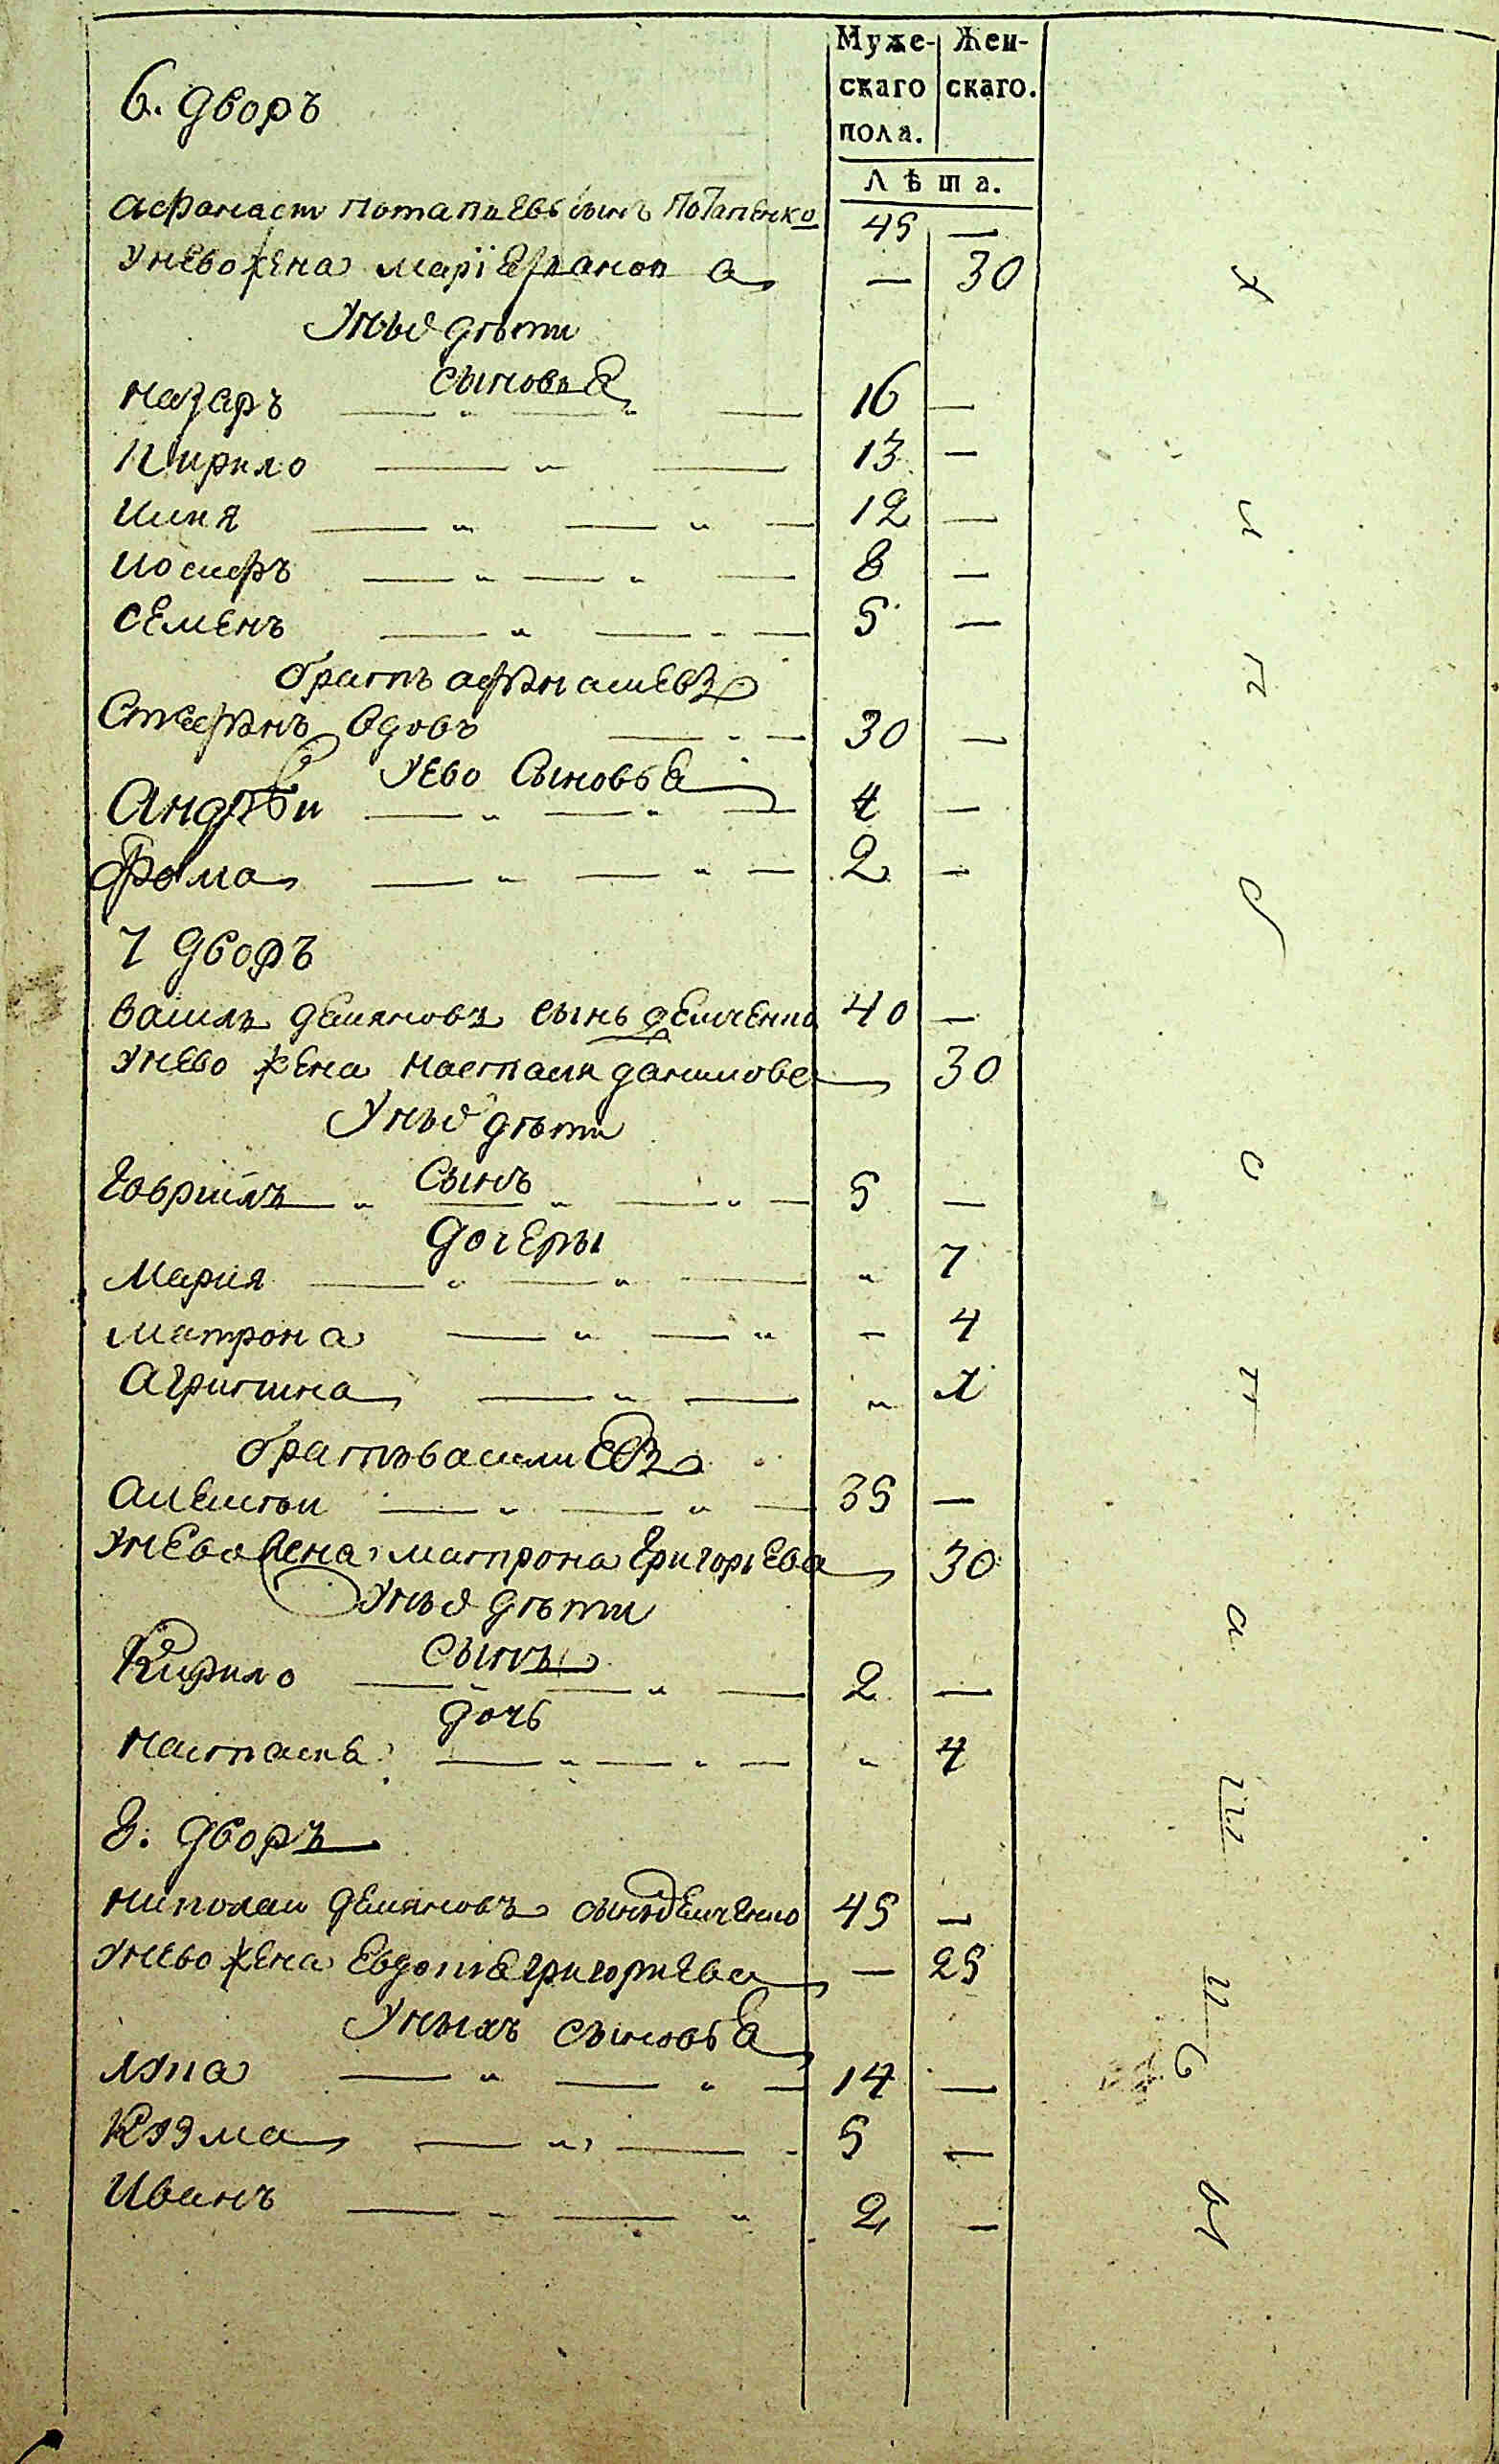 Муже- Жен-
скаго скаго.
пола.
Лѣта.
6. дворъ
афанаси потапиевъ сынъ потапенко 45 —
унево жена марiя — 30
унье дѣти
сыновья
назаръ 16 —
Кирило 13 —
илия 12 —
иосифъ 8 —
семенъ 5 —
братъ афанасиевъ
Стефанъ вдовъ 30 —
уево Сыновья
Андрѣи 4 —
Фома 2 —
7 дворъ
василь демяновъ сынъ демченко 40 —
унево жена настасия данилова 30
унье дѣти
Сынъ
гавриилъ 5 —
дочеры
Мария „ 7
матрона — 4
агрипина „ 1
братъ василиевъ
алексѣи 35 —
унево жена матрона григорьева 30
унье дѣти
Сынъ
Кирило 2 —
дочь
настасия „ 4
8. дворъ
николаи демяновъ сынъ демченко 45 —
унево жена евдокия григориева — 25
унихъ сыновья
лука 14 —
Козма 5 —
Иванъ 2 —